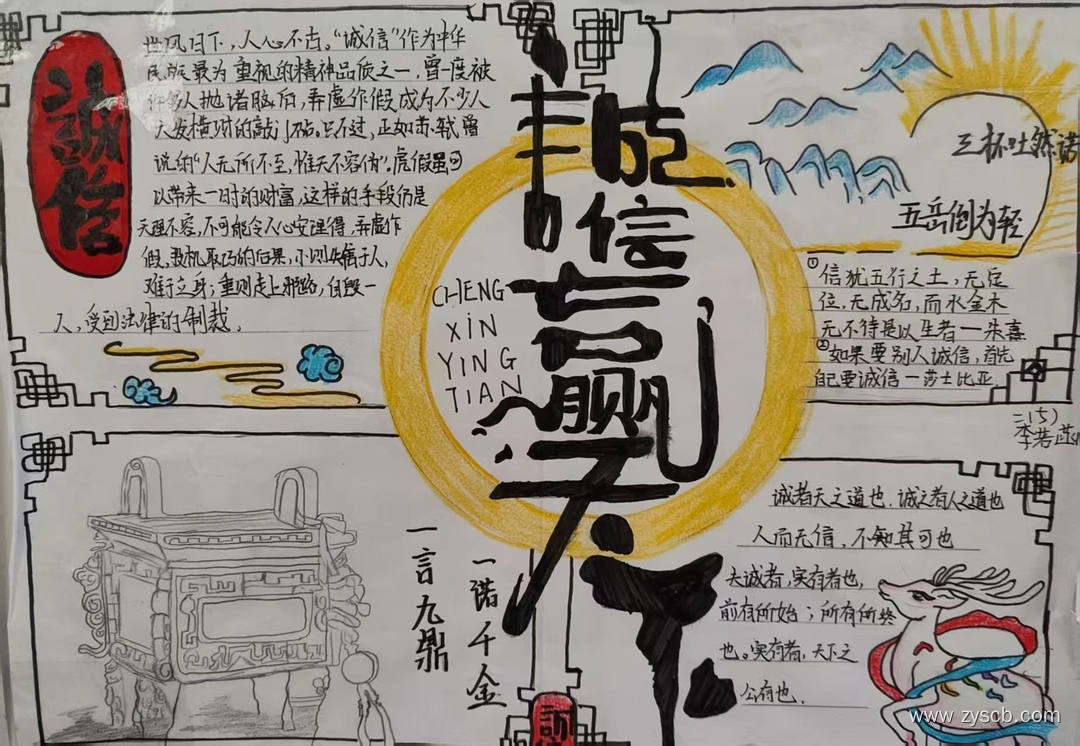 誠信
世风日下，人心不古。“诚信”作为中华
民族最为重视的精神品质之一，曾一度被
许多人抛诸脑后，弄虚作假成为不少人
大发横财的敲门砖。只不过，正如苏轼曾
说的“人无所不至，惟天不容伪”。虚假虽可
以带来一时的财富，这样的手段仍是
天理不容，不可能令人心安理得，弄虚作
假、投机取巧的后果，小则失信于人，
难行立身；重则走上邪路，自毁一
人，受到法律的制裁。
诚信赢天下
CHENG
XIN
YING
TIAN
三杯吐然诺
五岳倒为轻
①信犹五行之土，无定
位，无成名，而水金木
无不待是以生者一朱熹
②如果要别人诚信，首先
自己要诚信一莎士比亚
二(5)
一言九鼎
一诺千金
诚者天之道也，诚之者人之道也
人而无信，不知其可也
夫诚者，实有者也，
前有所始；所有所终
也。实有者，天下之
公有也。
www.zyscb.com